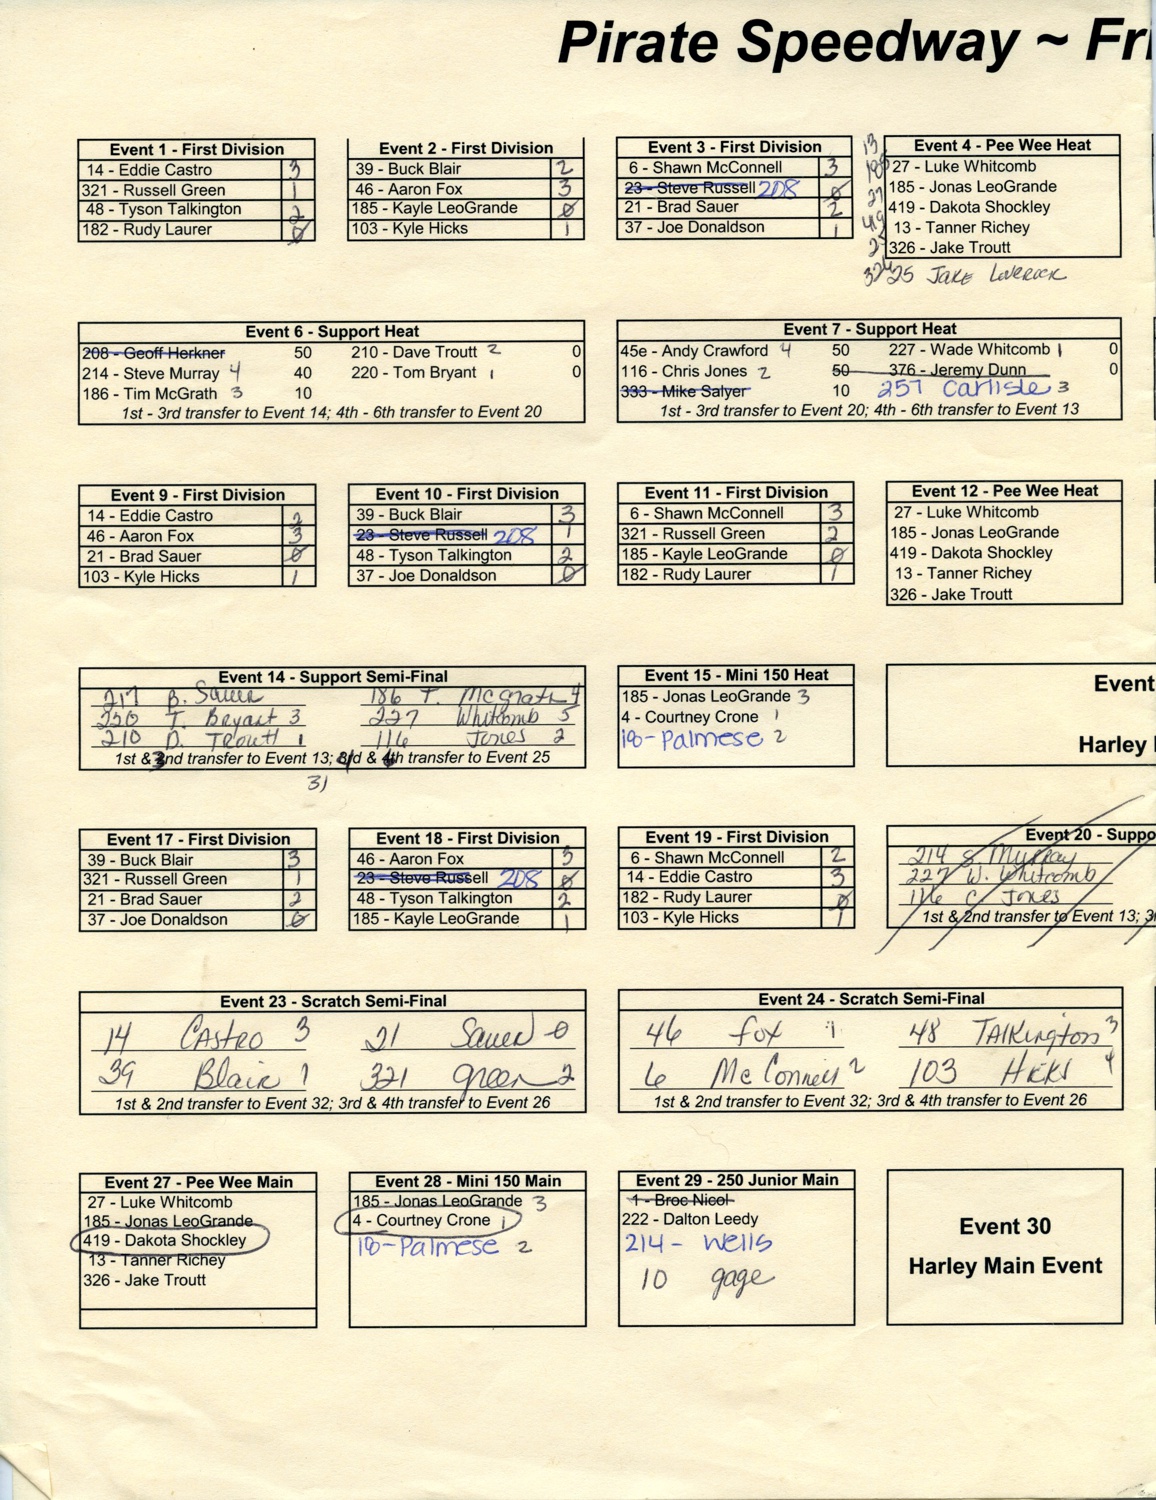 Pirate Speedway ~ Fri
Event 1 - First Division
14 - Eddie Castro 3
321 - Russell Green 1
48 - Tyson Talkington 2
182 - Rudy Laurer 0
Event 2 - First Division
39 - Buck Blair 2
46 - Aaron Fox 3
185 - Kayle LeoGrande 0
103 - Kyle Hicks 1
Event 3 - First Division
6 - Shawn McConnell 3
23 - Steve Russell 208 0
21 - Brad Sauer 2
37 - Joe Donaldson 1
Event 4 - Pee Wee Heat
13
27 - Luke Whitcomb
185 - Jonas LeoGrande
27
419 - Dakota Shockley
419
13 - Tanner Richey
326 - Jake Troutt
25 Jake Loverock
Event 6 - Support Heat
208 - Geoff Herkner 50 210 - Dave Troutt 2 0
214 - Steve Murray 4 40 220 - Tom Bryant 1 0
186 - Tim McGrath 3 10
1st - 3rd transfer to Event 14; 4th - 6th transfer to Event 20
Event 7 - Support Heat
45e - Andy Crawford 4 50 227 - Wade Whitcomb 1 0
116 - Chris Jones 2 50 376 - Jeremy Dunn 0
333 - Mike Salyer 10 257 Carlisle 3
1st - 3rd transfer to Event 20; 4th - 6th transfer to Event 13
Event 9 - First Division
14 - Eddie Castro 2
46 - Aaron Fox 3
21 - Brad Sauer 0
103 - Kyle Hicks 1
Event 10 - First Division
39 - Buck Blair 3
23 - Steve Russell 208 1
48 - Tyson Talkington 2
37 - Joe Donaldson 0
Event 11 - First Division
6 - Shawn McConnell 3
321 - Russell Green 2
185 - Kayle LeoGrande 0
182 - Rudy Laurer 1
Event 12 - Pee Wee Heat
27 - Luke Whitcomb
185 - Jonas LeoGrande
419 - Dakota Shockley
13 - Tanner Richey
326 - Jake Troutt
Event 14 - Support Semi-Final
217 B. Sauer 186 T. McGrath 4
220 T. Bryant 3 227 Whitcomb 5
210 D. Troutt 1 116 Jones 2
1st & nd transfer to Event 13; rd & th transfer to Event 25
31
Event 15 - Mini 150 Heat
185 - Jonas LeoGrande 3
4 - Courtney Crone 1
18 - Palmese 2
Event
Harley
Event 17 - First Division
39 - Buck Blair 3
321 - Russell Green 1
21 - Brad Sauer 2
37 - Joe Donaldson 0
Event 18 - First Division
46 - Aaron Fox 3
23 - Steve Russell 208 0
48 - Tyson Talkington 2
185 - Kayle LeoGrande 1
Event 19 - First Division
6 - Shawn McConnell 2
14 - Eddie Castro 3
182 - Rudy Laurer 0
103 - Kyle Hicks 1
Event 20 - Suppo
214 S. Murray
227 W. Whitcomb
116 C. Jones
1st & 2nd transfer to Event 13; 3
Event 23 - Scratch Semi-Final
14 Castro 3 21 Sauer 0
39 Blair 1 321 Green 2
1st & 2nd transfer to Event 32; 3rd & 4th transfer to Event 26
Event 24 - Scratch Semi-Final
46 Fox 1 48 Talkington 3
6 McConnell 2 103 Hicks 4
1st & 2nd transfer to Event 32; 3rd & 4th transfer to Event 26
Event 27 - Pee Wee Main
27 - Luke Whitcomb
185 - Jonas LeoGrande
419 - Dakota Shockley
13 - Tanner Richey
326 - Jake Troutt
Event 28 - Mini 150 Main
185 - Jonas LeoGrande 3
4 - Courtney Crone 1
18 - Palmese 2
Event 29 - 250 Junior Main
1 - Broc Nicol
222 - Dalton Leedy
214 - Wells
10 gage
Event 30
Harley Main Event